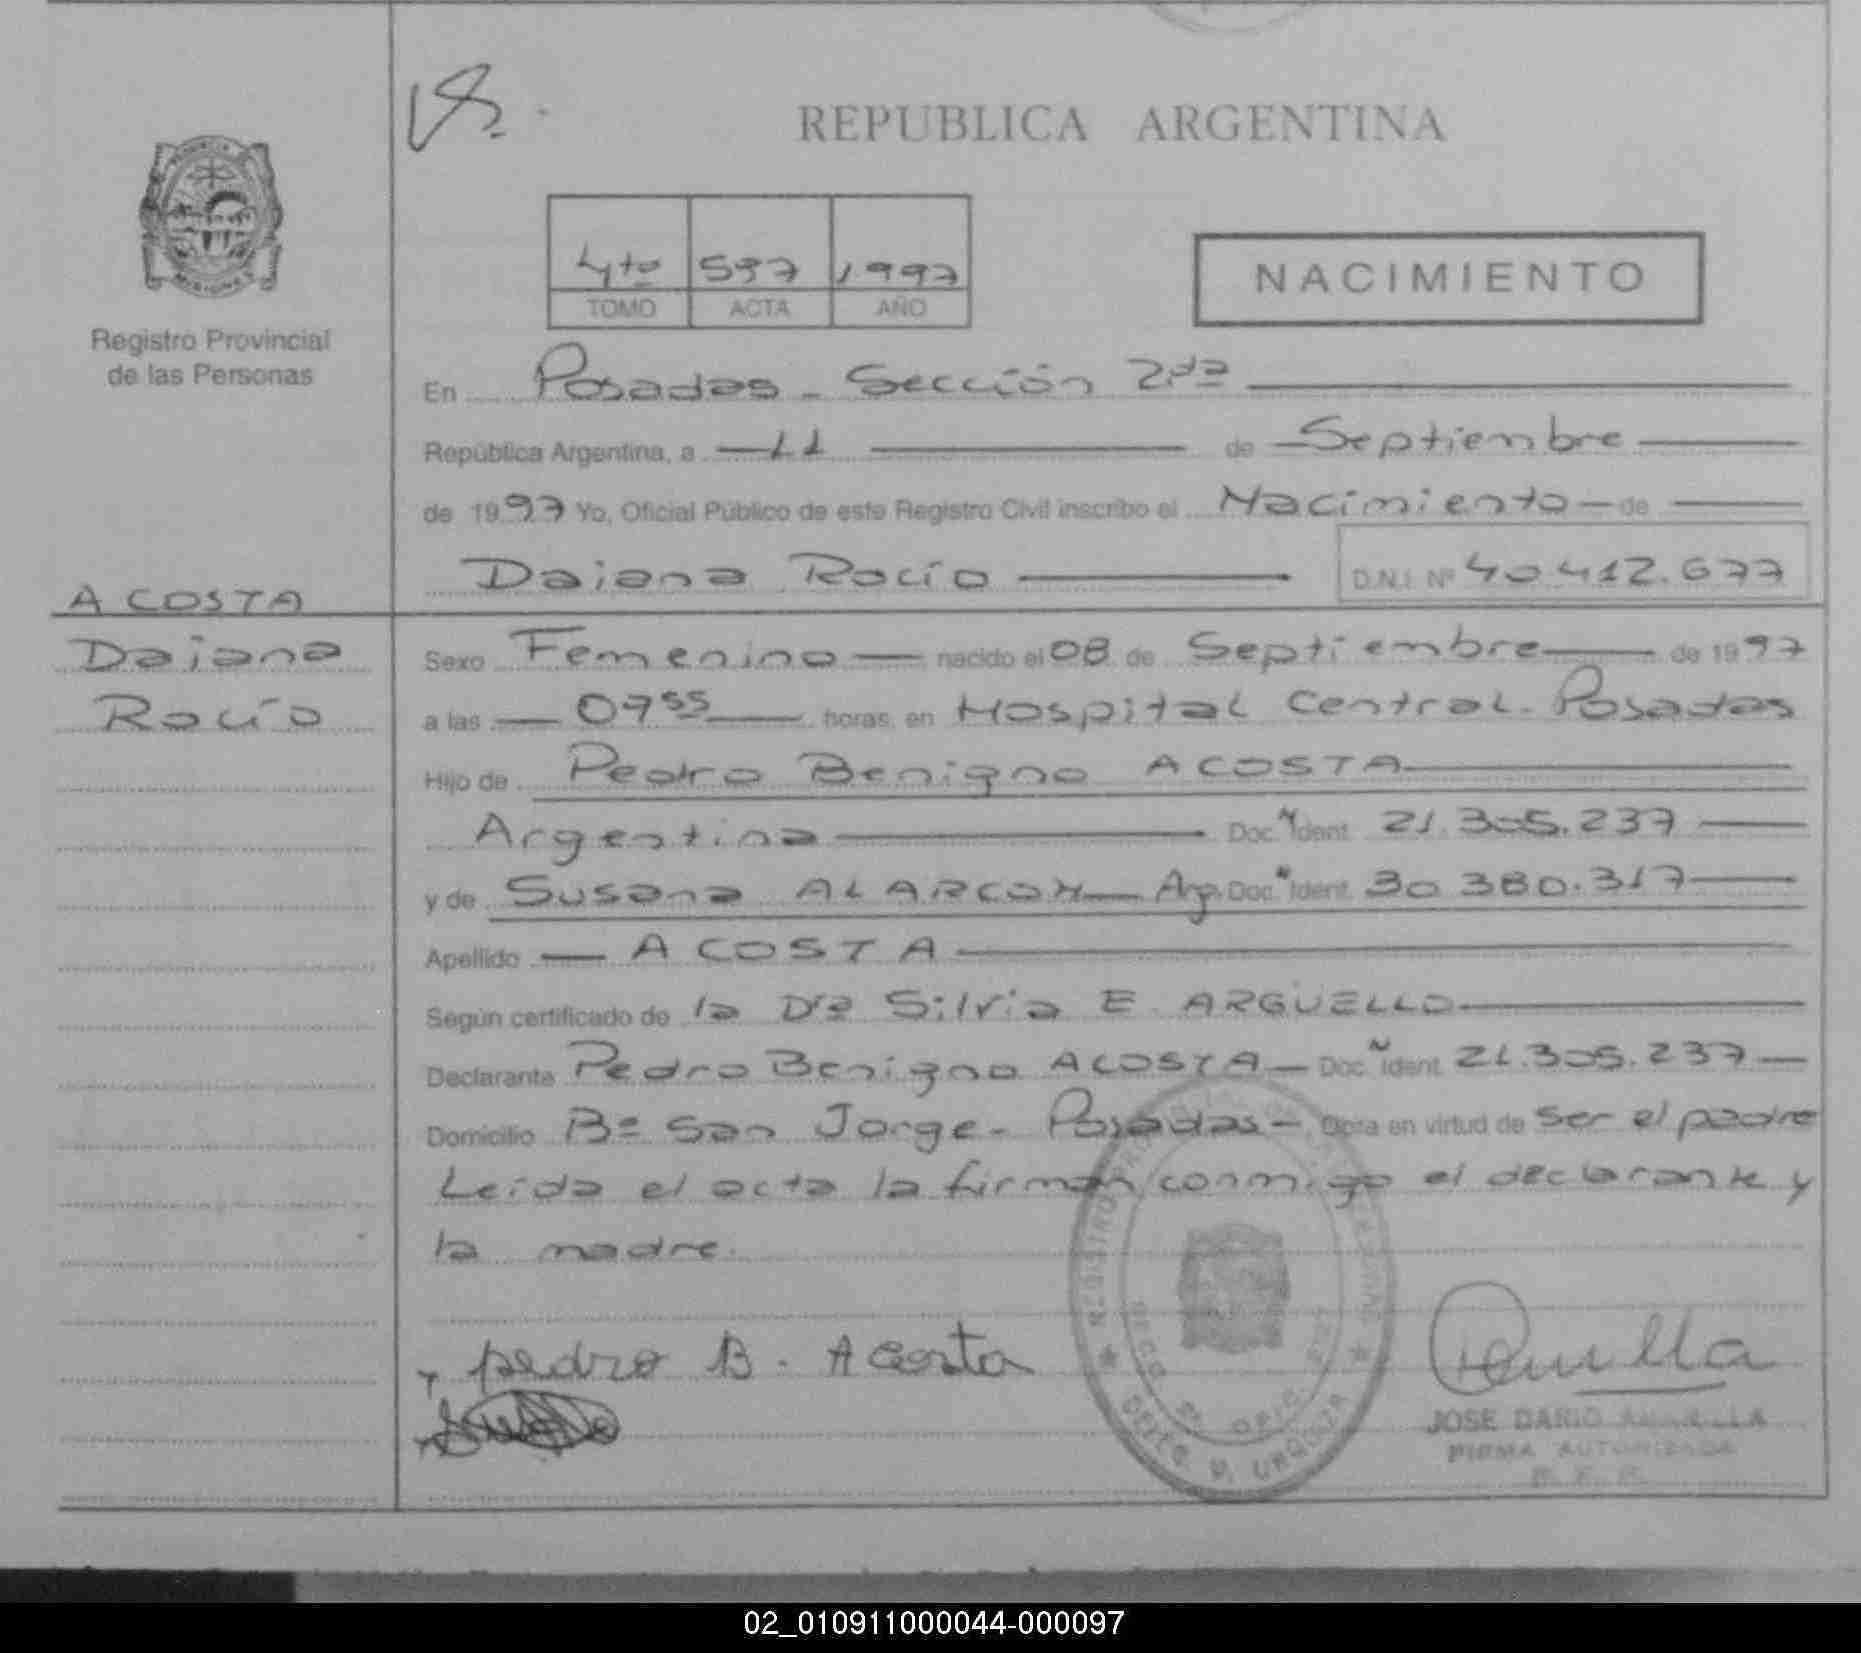 REPUBLICA ARGENTINA
PROVINCIA
MISIONES
Registro Provincial
de las Personas
4to 597 1997
TOMO ACTA AÑO
NACIMIENTO
En Posadas - Sección 2da
República Argentina, a 11 de Septiembre
de 1997 Yo, Oficial Público de este Registro Civil inscribo el Nacimiento de
Daiana Rocío D.N.I. Nº 40.412.677
ACOSTA
Daiana
Rocío
Sexo Femenino nacido el 08 de Septiembre de 1997
a las 07 55 horas, en Hospital Central. Posadas
Hijo de Pedro Benigno ACOSTA
Argentina Doc. N Ident. 21.305.237
y de Susana ALARCON Arg. Doc. Ident. 30 380.317
Apellido ACOSTA
Según certificado de la Dra Silvia E. ARGÜELLO
Declarante Pedro Benigno ACOSTA Doc. N Ident. 21.305.237
Domicilio Bº San Jorge - Posadas - Obra en virtud de ser el padre
Leída el acta la firman conmigo el declarante y
la madre.
pedro B. Acosta
REGISTRO DE LAS PERSONAS
DELEG. V. URQUIZA
JOSE DARIO AMARILLA
FIRMA AUTORIZADA
02_010911000044-000097